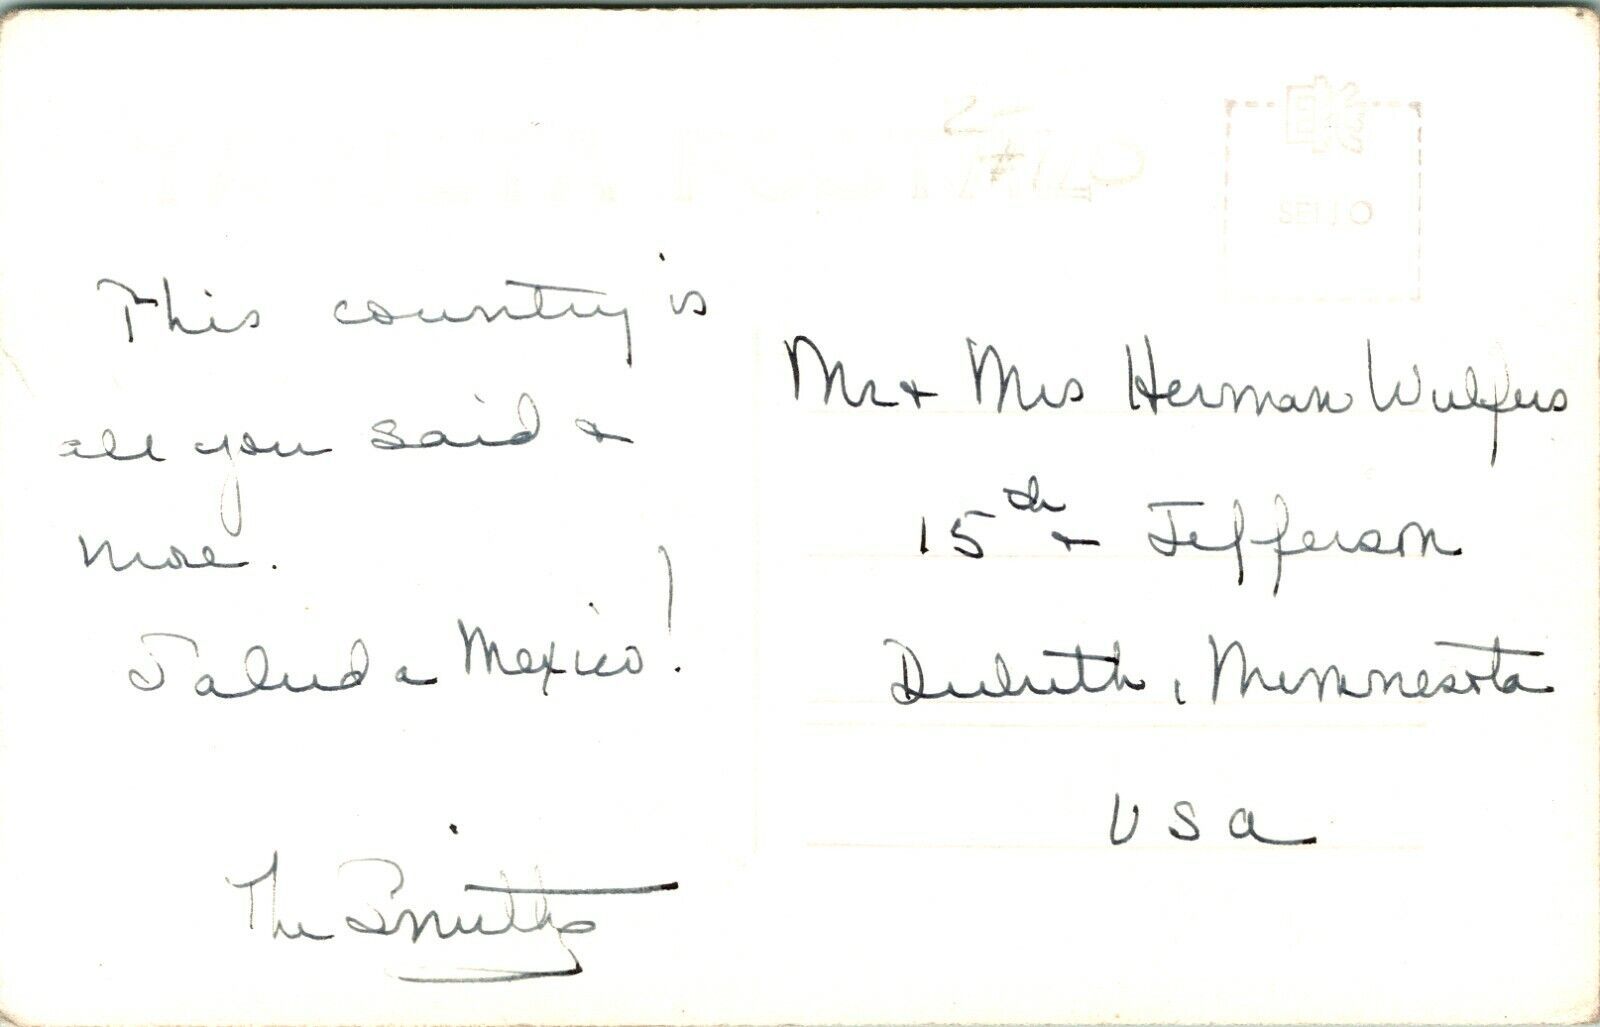 TARJETA POSTAL
SELLO
This country is
all you said &
more.
Salud a Mexico!
The Smiths
Mr & Mrs Herman Wulfers
15th & Jefferson
Duluth, Minnesota
USA